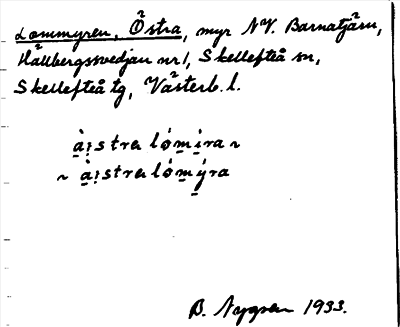 Lommyren, Östra, myr NV. Barnatjärn,
Hällbergssvedjan nr 1, Skellefteå sn,
Skellefteå tg, Västerb. l.
ài̯stra lómi̮ra ~
~ ài̯stra lómýra
B. Nygren 1933.